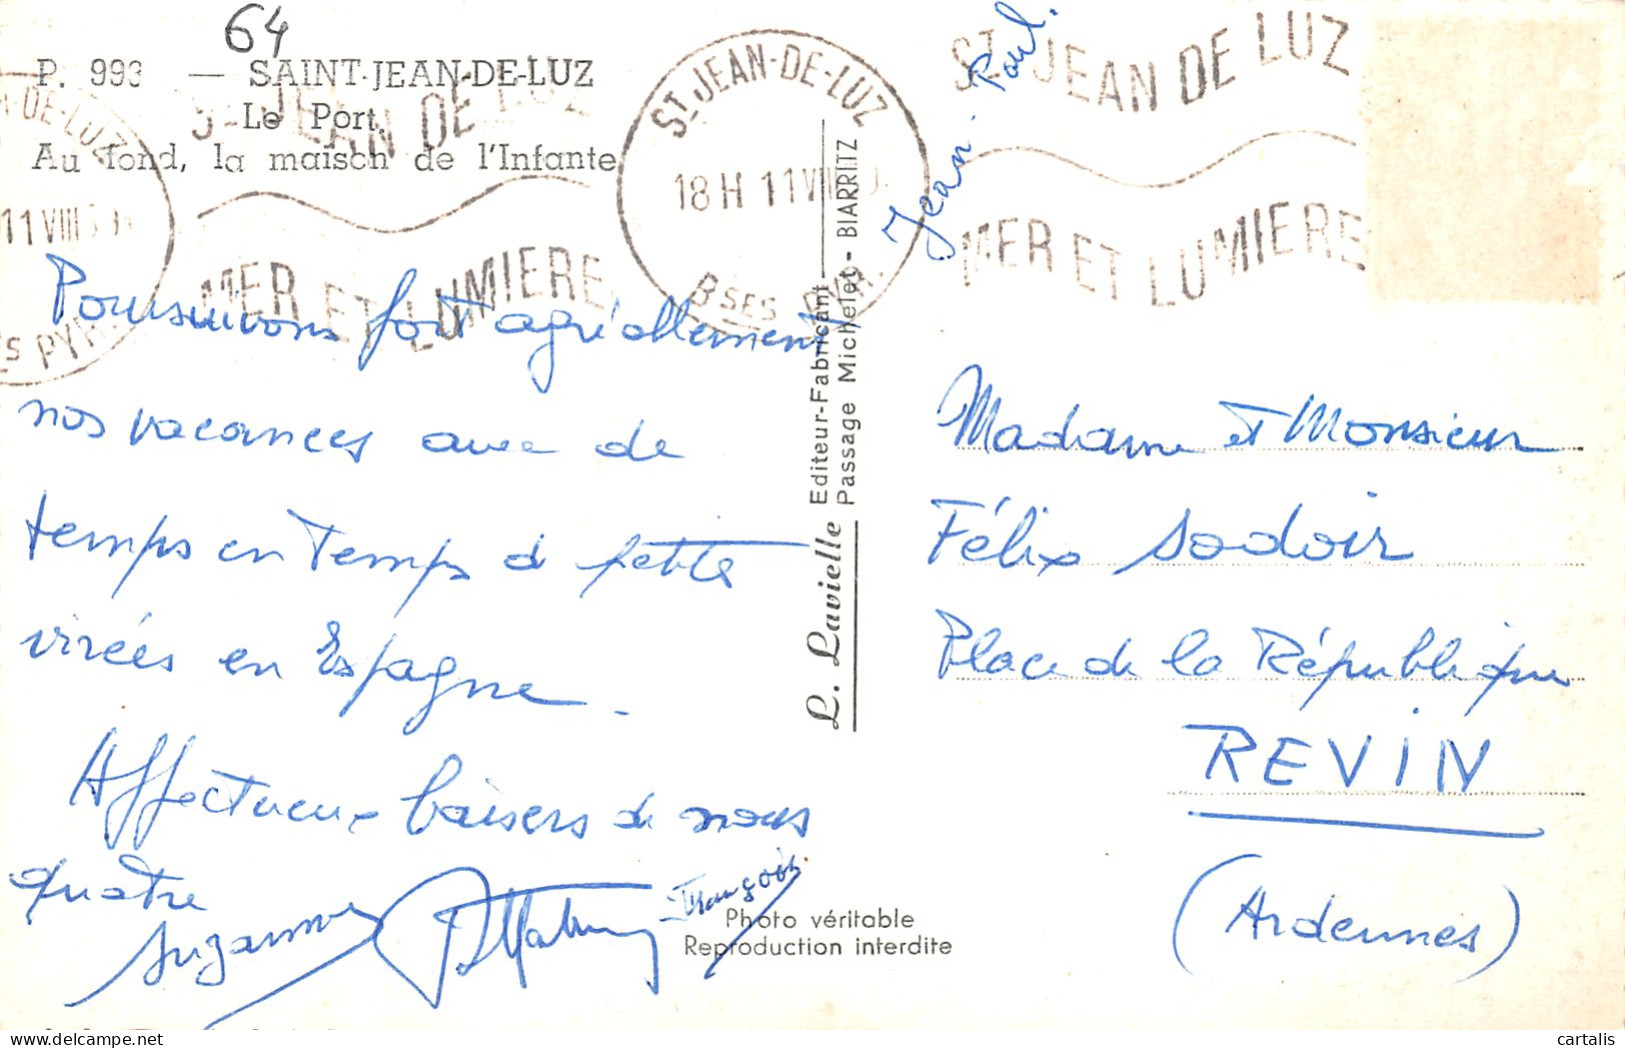 64
P. 993 — SAINT-JEAN-DE-LUZ
Le Port.
Au fond, la maison de l'Infante
ST JEAN-DE-LUZ
18 H 11 VIII
BSES PYR.
ST JEAN DE LUZ
MER ET LUMIERE
ST JEAN DE LUZ
MER ET LUMIERE
DE-LUZ
11 VIII
S PYR.
Jean-Paul.
Poursuivons fort agréablement
nos vacances avec de
temps en temps de petites
virées en Espagne.
Affectueux baisers de nous
quatre
Suzanne
François
L. Lavielle
Editeur-Fabricant
Passage Michelet - BIARRITZ
Madame et Monsieur
Félix Sodoir
Place de la République
REVIN
(Ardennes)
Photo véritable
Reproduction interdite
cartalis